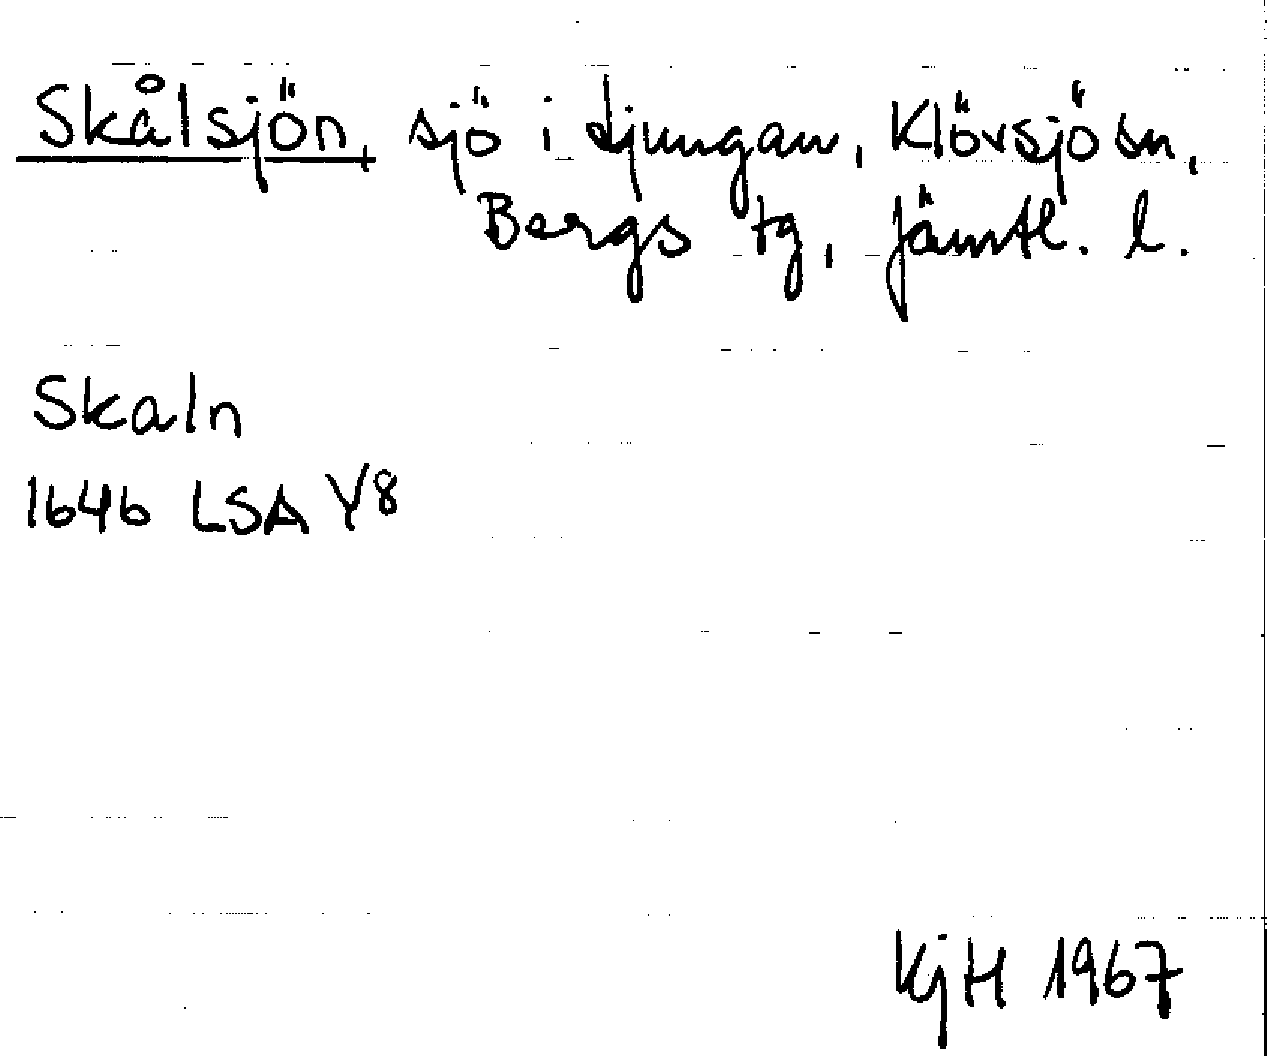 Skålsjön, sjö i Ljungan, Klövsjö sn,
Bergs tg, Jämtl. l.
Skaln
1646 LSA Y8
KjH 1967